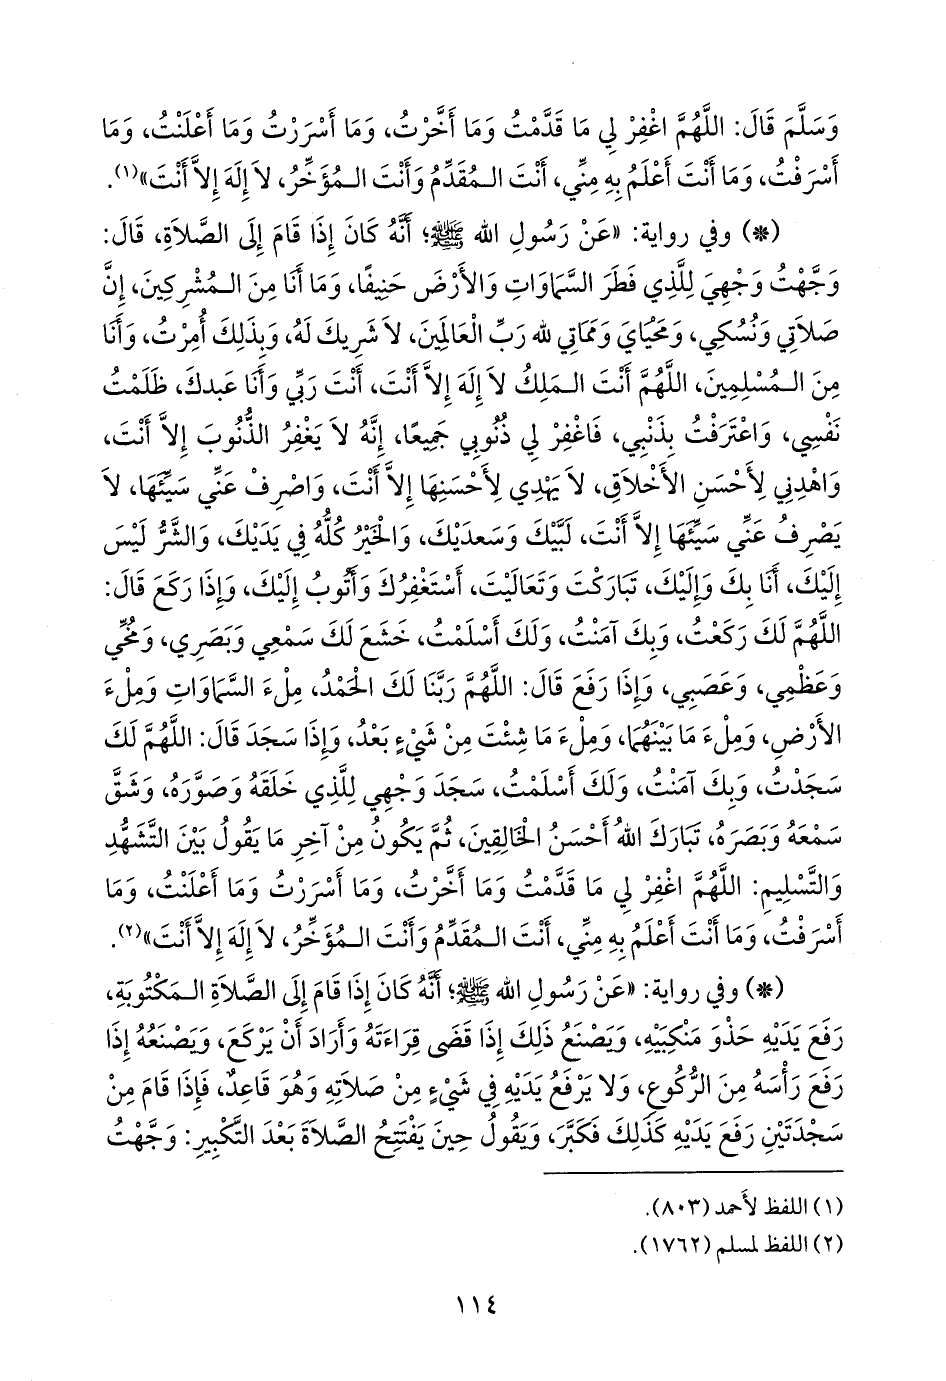 وَسَلَّمَ قَالَ: اللَّهُمَّ اغْفِرْ لِي مَا قَدَّمْتُ وَمَا أَخَّرْتُ، وَمَا أَسْرَرْتُ وَمَا أَعْلَنْتُ، وَمَا
أَسْرَفْتُ، وَمَا أَنْتَ أَعْلَمُ بِهِ مِنِّي، أَنْتَ الـمُقَدِّمُ وَأَنْتَ الـمُؤَخِّرُ، لاَ إِلَهَ إِلاَّ أَنْتَ»(١).
(*) وفي رواية: «عَنْ رَسُولِ الله ﷺ؛ أَنَّهُ كَانَ إِذَا قَامَ إِلَى الصَّلاَةِ، قَالَ:
وَجَّهْتُ وَجْهِيَ لِلَّذِي فَطَرَ السَّمَاوَاتِ وَالأَرْضَ حَنِيفًا، وَمَا أَنَا مِنَ الـمُشْرِكِينَ، إِنَّ
صَلاَتِي وَنُسُكِي، وَمَحْيَايَ وَمَمَاتِي لله رَبِّ الْعَالَمِينَ، لاَ شَرِيكَ لَهُ، وَبِذَلِكَ أُمِرْتُ، وَأَنَا
مِنَ الـمُسْلِمِينَ، اللَّهُمَّ أَنْتَ الـمَلِكُ لاَ إِلَهَ إِلاَّ أَنْتَ، أَنْتَ رَبِّي وَأَنَا عَبدكَ، ظَلَمْتُ
نَفْسِي، وَاعْتَرَفْتُ بِذَنْبِي، فَاغْفِرْ لِي ذُنُوبِي جَمِيعًا، إِنَّهُ لاَ يَغْفِرُ الذُّنُوبَ إِلاَّ أَنْتَ،
وَاهْدِنِي لِأَحْسَنِ الأَخْلاَقِ، لاَ يَهْدِي لِأَحْسَنِهَا إِلاَّ أَنْتَ، وَاصْرِفْ عَنِّي سَيِّئَهَا، لاَ
يَصْرِفُ عَنِّي سَيِّئَهَا إِلاَّ أَنْتَ، لَبَّيْكَ وَسَعدَيْكَ، وَالْخَيْرُ كُلُّهُ فِي يَدَيْكَ، وَالشَّرُّ لَيْسَ
إِلَيْكَ، أَنَا بِكَ وَإِلَيْكَ، تَبَارَكْتَ وَتَعَالَيْتَ، أَسْتَغْفِرُكَ وَأَتُوبُ إِلَيْكَ، وَإِذَا رَكَعَ قَالَ:
اللَّهُمَّ لَكَ رَكَعْتُ، وَبِكَ آمَنْتُ، وَلَكَ أَسْلَمْتُ، خَشَعَ لَكَ سَمْعِي وَبَصَرِي، وَمُخِّي
وَعَظْمِي، وَعَصَبِي، وَإِذَا رَفَعَ قَالَ: اللَّهُمَّ رَبَّنَا لَكَ الْحَمْدُ، مِلْءَ السَّمَاوَاتِ وَمِلْءَ
الأَرْضِ، وَمِلْءَ مَا بَيْنَهُمَا، وَمِلْءَ مَا شِئْتَ مِنْ شَيْءٍ بَعْدُ، وَإِذَا سَجَدَ قَالَ: اللَّهُمَّ لَكَ
سَجَدْتُ، وَبِكَ آمَنْتُ، وَلَكَ أَسْلَمْتُ، سَجَدَ وَجْهِي لِلَّذِي خَلَقَهُ وَصَوَّرَهُ، وَشَقَّ
سَمْعَهُ وَبَصَرَهُ، تَبَارَكَ اللهُ أَحْسَنُ الْخَالِقِينَ، ثُمَّ يَكُونُ مِنْ آخِرِ مَا يَقُولُ بَيْنَ التَّشَهُّدِ
وَالتَّسْلِيمِ: اللَّهُمَّ اغْفِرْ لِي مَا قَدَّمْتُ وَمَا أَخَّرْتُ، وَمَا أَسْرَرْتُ وَمَا أَعْلَنْتُ، وَمَا
أَسْرَفْتُ، وَمَا أَنْتَ أَعْلَمُ بِهِ مِنِّي، أَنْتَ الـمُقَدِّمُ وَأَنْتَ الـمُؤَخِّرُ، لاَ إِلَهَ إِلاَّ أَنْتَ»(٢).
(*) وفي رواية: «عَنْ رَسُولِ الله ﷺ؛ أَنَّهُ كَانَ إِذَا قَامَ إِلَى الصَّلاَةِ الـمَكْتُوبَةِ،
رَفَعَ يَدَيْهِ حَذْوَ مَنْكِبَيْهِ، وَيَصْنَعُ ذَلِكَ إِذَا قَضَى قِرَاءَتَهُ وَأَرَادَ أَنْ يَرْكَعَ، وَيَصْنَعُهُ إِذَا
رَفَعَ رَأْسَهُ مِنَ الرُّكُوعِ، وَلا يَرْفَعُ يَدَيْهِ فِي شَيْءٍ مِنْ صَلاَتِهِ وَهُوَ قَاعِدٌ، فَإِذَا قَامَ مِنْ
سَجْدَتَيْنِ رَفَعَ يَدَيْهِ كَذَلِكَ فَكَبَّرَ، وَيَقُولُ حِينَ يَفْتَتِحُ الصَّلاَةَ بَعْدَ التَّكْبِيرِ: وَجَّهْتُ
(١) اللفظ لأَحمد (٨٠٣).
(٢) اللفظ لمسلم (١٧٦٢).
١١٤